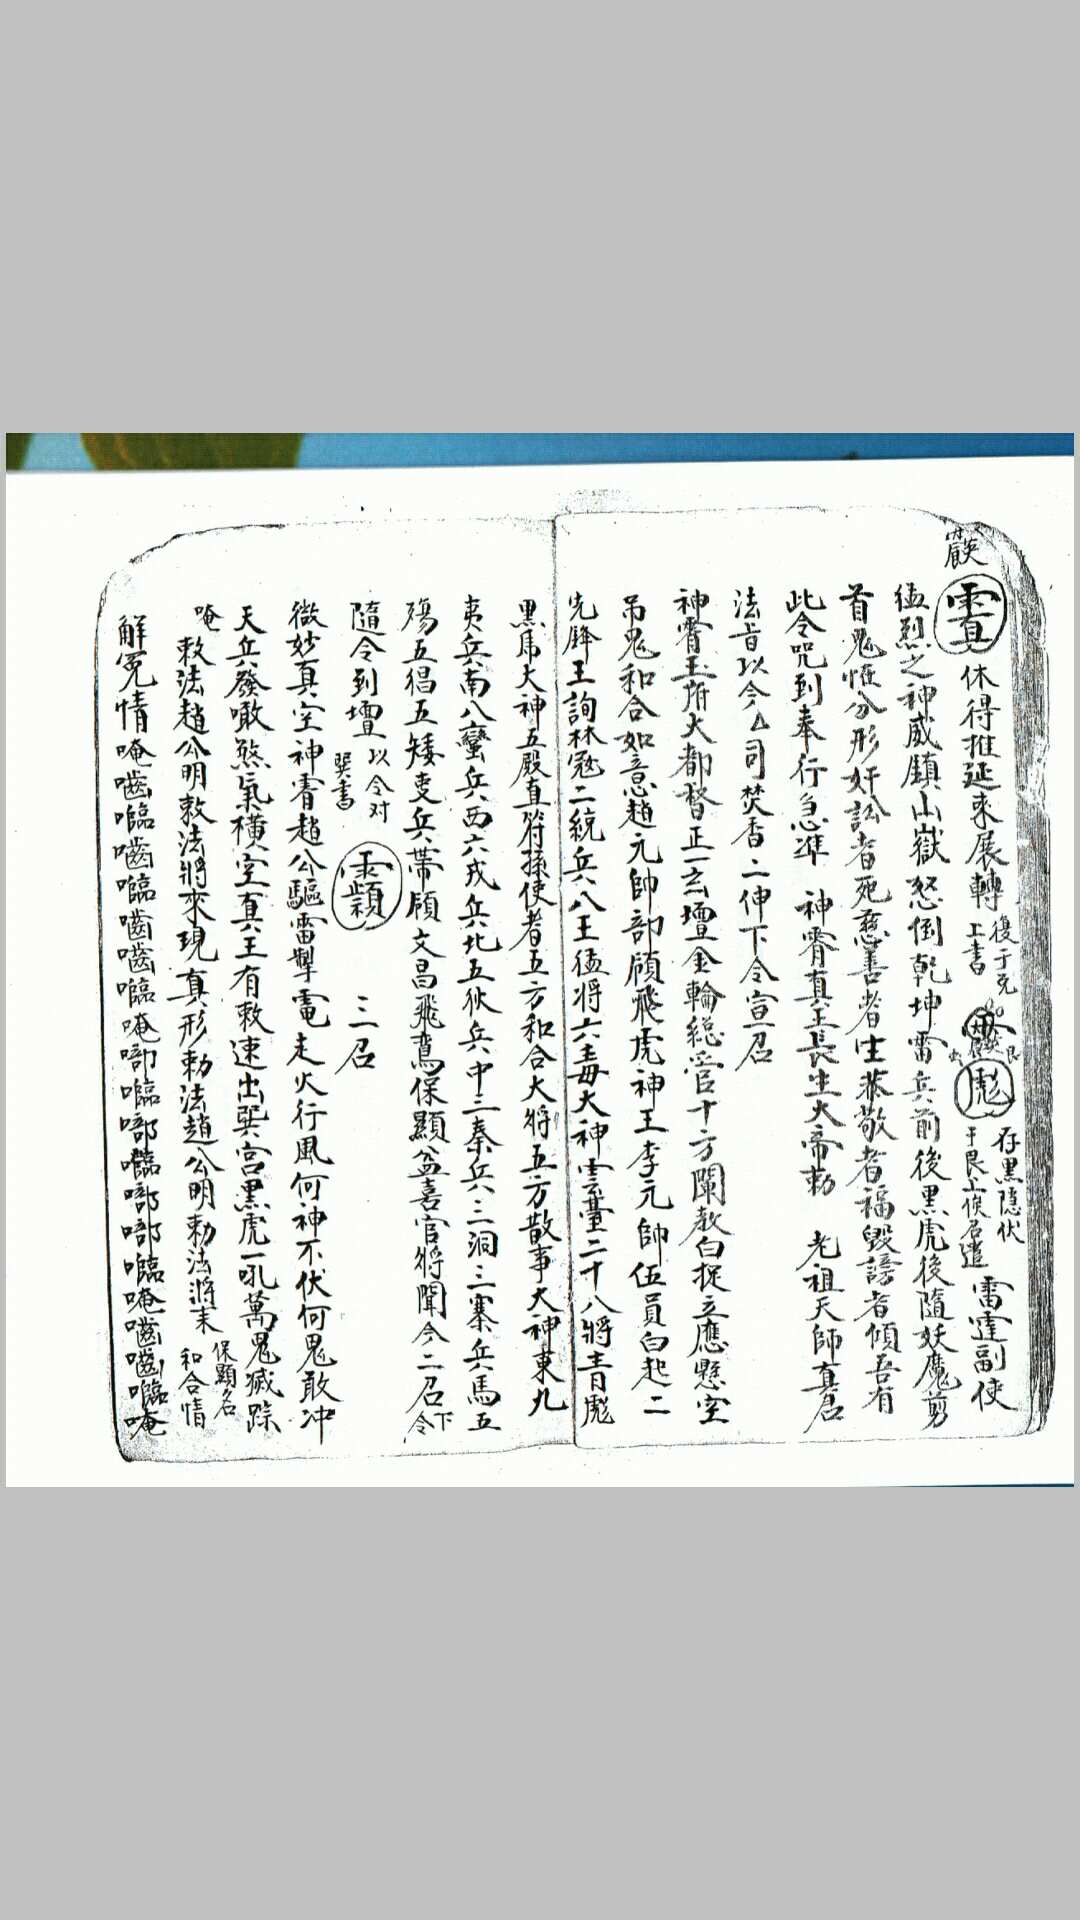 休得推延來展轉
上書
雷霆副使
猛烈之神威鎮山嶽怒倒乾坤雷兵前後黑虎後隨妖魔剪
首鬼怪分形奸訟者死慈善者生恭敬者福毀謗者傾吾有
此令咒到奉行急準 神霄真王長生大帝勅 老祖天師真君
法旨以今厶司焚香二伸下令宣召
神霄玉府大都督正一玄壇金輪総管十方闡教白捉立應懸空
吊鬼和合如意趙元帥部領飛虎神王李元帥伍員白起二
先鋒王詢林冦二統兵八王猛将六毒大神雲臺二十八將青彪
黑馬大神五殿直符孫使者五方和合大將五方散事大神東九
夷兵南八蠻兵西六戎兵北五狄兵中三秦兵三洞三寨兵馬五
殤五猖五矮吏兵帶領文昌飛鸞保顯益喜官將聞今二召下令
隨令到壇 以令对巽書 三召
微妙真空神霄趙公驅雷掣電走火行風何神不伏何鬼敢冲
天兵發噉煞氣橫空真王有敕速出巽宮黑虎一吼萬鬼滅踪
唵 敕法趙公明敕法將來現真形勅法趙公明勅法將来 保顯名和合情
解冤情唵嚙㘔嚙㘔嚙嚙㘔唵㗉㘔㗉㘔㗉㗉㘔唵嚙嚙㘔唵